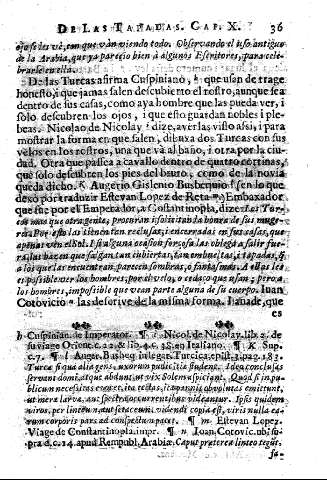 DE LAS TAPADAS. CAP. X. 36
ojos se les vè, con que van viendo todo. Observando el uso antiguo
de la Arabia, que ya pareciò bien à algunos Escritores, para cele-
brarse en ella.
De las Turcas afirma Cuspiniano, h que usan de trage
honesto, i que jamas salen descubierto el rostro, aunque sea
dentro de sus casas, como aya hombre que las pueda ver, i
solo descubren los ojos, i que esto guardan nobles i ple-
beas. Nicolao de Nicolay i dize, averlas visto assi, i para
mostrar la forma en que salen, dibuxa dos Turcas con sus
velos en los rostros, una que và al baño, i otra por la ciu-
dad. Otra que passea a cavallo dentro de quatro cortinas,
que solo descubren los pies del bruto, como de la novia
queda dicho. k Augerio Gislenio Busbequio l (en lo que
dexò por traduzir Estevan Lopez de Reta m) Embaxador
que fue por el Emperador, a Costantinopla, dize: Los Tur-
cos mas que otra gente, procuran i solicitan la honra de sus muge-
res. Por esto las tienen tan reclusas, i encerradas en sus casas, que
apenas ven el Sol. I si alguna ocasion forçosa las obliga à salir fue-
ra, las hazen que salgan tan cubiertas, tan embueltas, i tapadas, q
a los que las encuentran parecen sombras, o fantasmas. A ellas les
es possible ver los hombres, por el velo, o cedaço que usan, pero a
los hombres, impossible que vean parte alguna de su cuerpo. Iuan
Cotovicio n las descrive de la misma forma. I añade, que
es
h Cuspinian. de Imperator. ¶ i Nicol. de Nicolay. lib. 2. de
su viage Orient. c. 22. & lib. 4. c. 32. en Italiano. ¶ k Sup.
c. 7. ¶ l Auger. Busbeq. in legat. Turcica, epist. 3. pag. 183.
Turcæ si qua alia gens, uxorum pudicitiæ student. Idea conclusas
servant domi, atque abdunt, ut vix Solem aspiciant. Quod si in pu-
blicum necessitas evocet, ita tectas, ita opertas, obvolutas emittunt,
ut mera larvæ, aut spectra occurrentibus videantur. Ipsis quidem
viros, per linteum, aut setaceum videndi copia est, viris nulla ea-
rum corporis pars ad conspectum patet. ¶ m Estevan Lopez.
Viage de Constantinopla. impr. ¶ n Ioan. Cotovic. ubi su-
pra d. c. 14. apud Rempubl. Arabiæ. Caput præterea linteo tegūt,
fa-